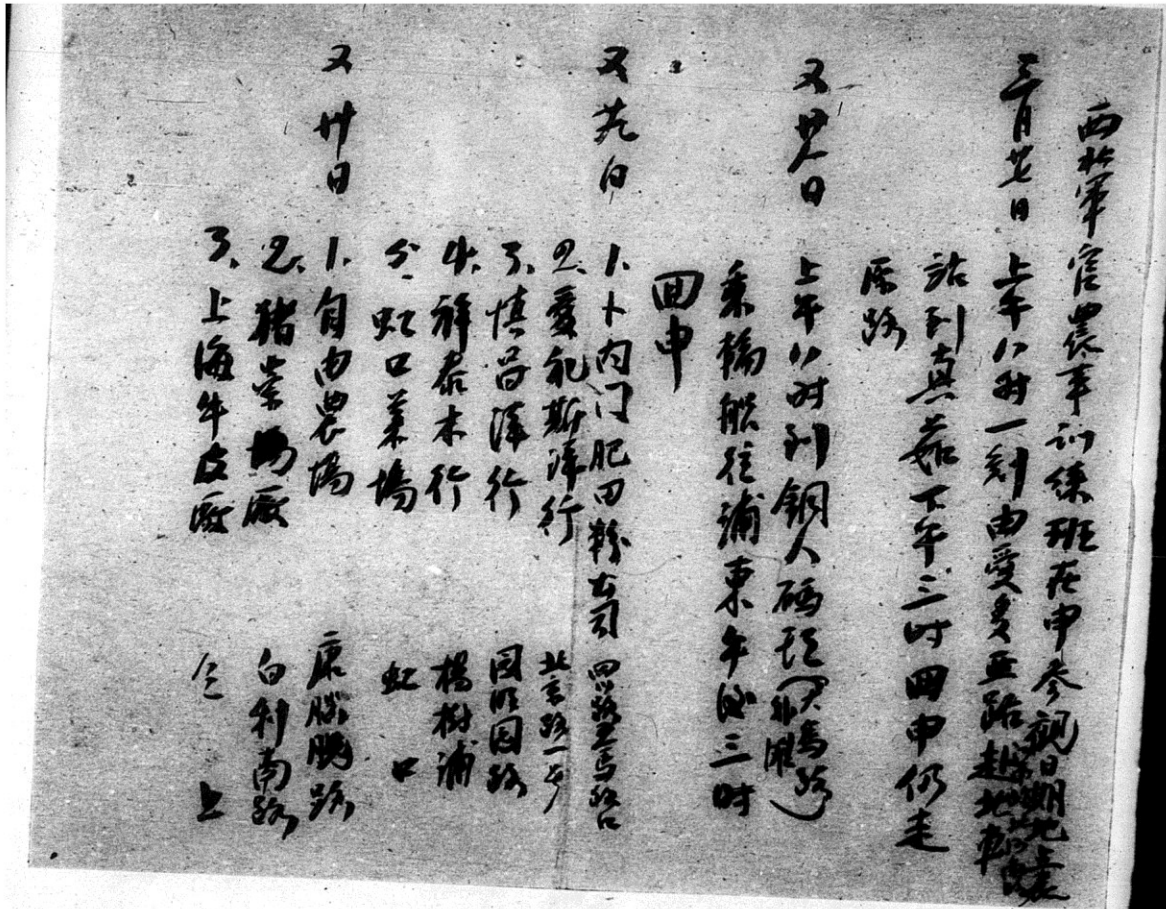 西北軍官農事训练班在申参观日期地点表
三月廿七日 上午八时一刻由爱多亚路赴北車
站到真茹下午三时回申仍走
原路
又廿八日 上午八时到銅人碼頭(大馬路外灘)
乘橋船往浦東午后三时
回申
又廿九日 1.卜内门肥田粉公司 四川路五馬路口
2.爱礼斯洋行 北京路一号
3.慎昌洋行 圆明园路
4.祥泰木行 楊樹浦
5.虹口菜場 虹口
又卅日 1.自由農場 康腦脱路
2.猪棠廠 白利南路
3.上海牛皮廠 仝上